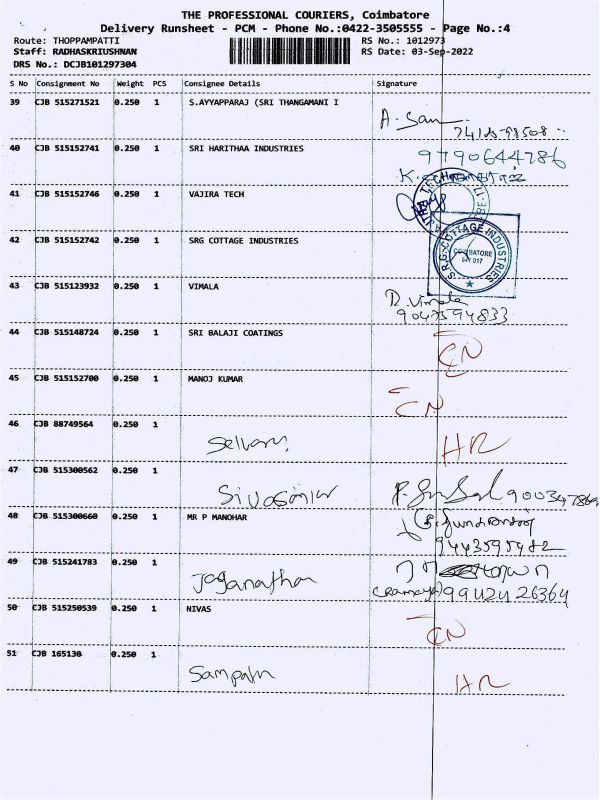 THE PROFESSIONAL COURIERS, Coimbatore
Delivery Runsheet - PCM - Phone No.:0422-3505555 - Page No.:4
Route: THOPPAMPATTI RS No.: 1012973
Staff: RADHASKRIUSHNAN RS Date: 03-Sep-2022
DRS No.: DCJB101297304
S No Consignment No Weight PCS Consignee Details Signature
39 CJB 515271521 0.250 1 S.AYYAPPARAJ (SRI THANGAMANI I
A. Sam
40 CJB 515152741 0.250 1 SRI HARITHAA INDUSTRIES 9790644786
41 CJB 515152746 0.250 1 VAJIRA TECH
42 CJB 515152742 0.250 1 SRG COTTAGE INDUSTRIES
S.R.G. COTTAGE INDUSTRIES
COIMBATORE
641 017
43 CJB 515123932 0.250 1 VIMALA
R. Vimala
9047594833
44 CJB 515148724 0.250 1 SRI BALAJI COATINGS CN
45 CJB 515152700 0.250 1 MANOJ KUMAR CN
46 CJB 88749564 0.250 1 Selvam HR
47 CJB 515300562 0.250 1
48 CJB 515300660 0.250 1 MR P MANOHAR
9443595982
49 CJB 515241783 0.250 1 Jaganathan
9942426364
50 CJB 515250539 0.250 1 NIVAS CN
51 CJB 165130 0.250 1 Sampath HR